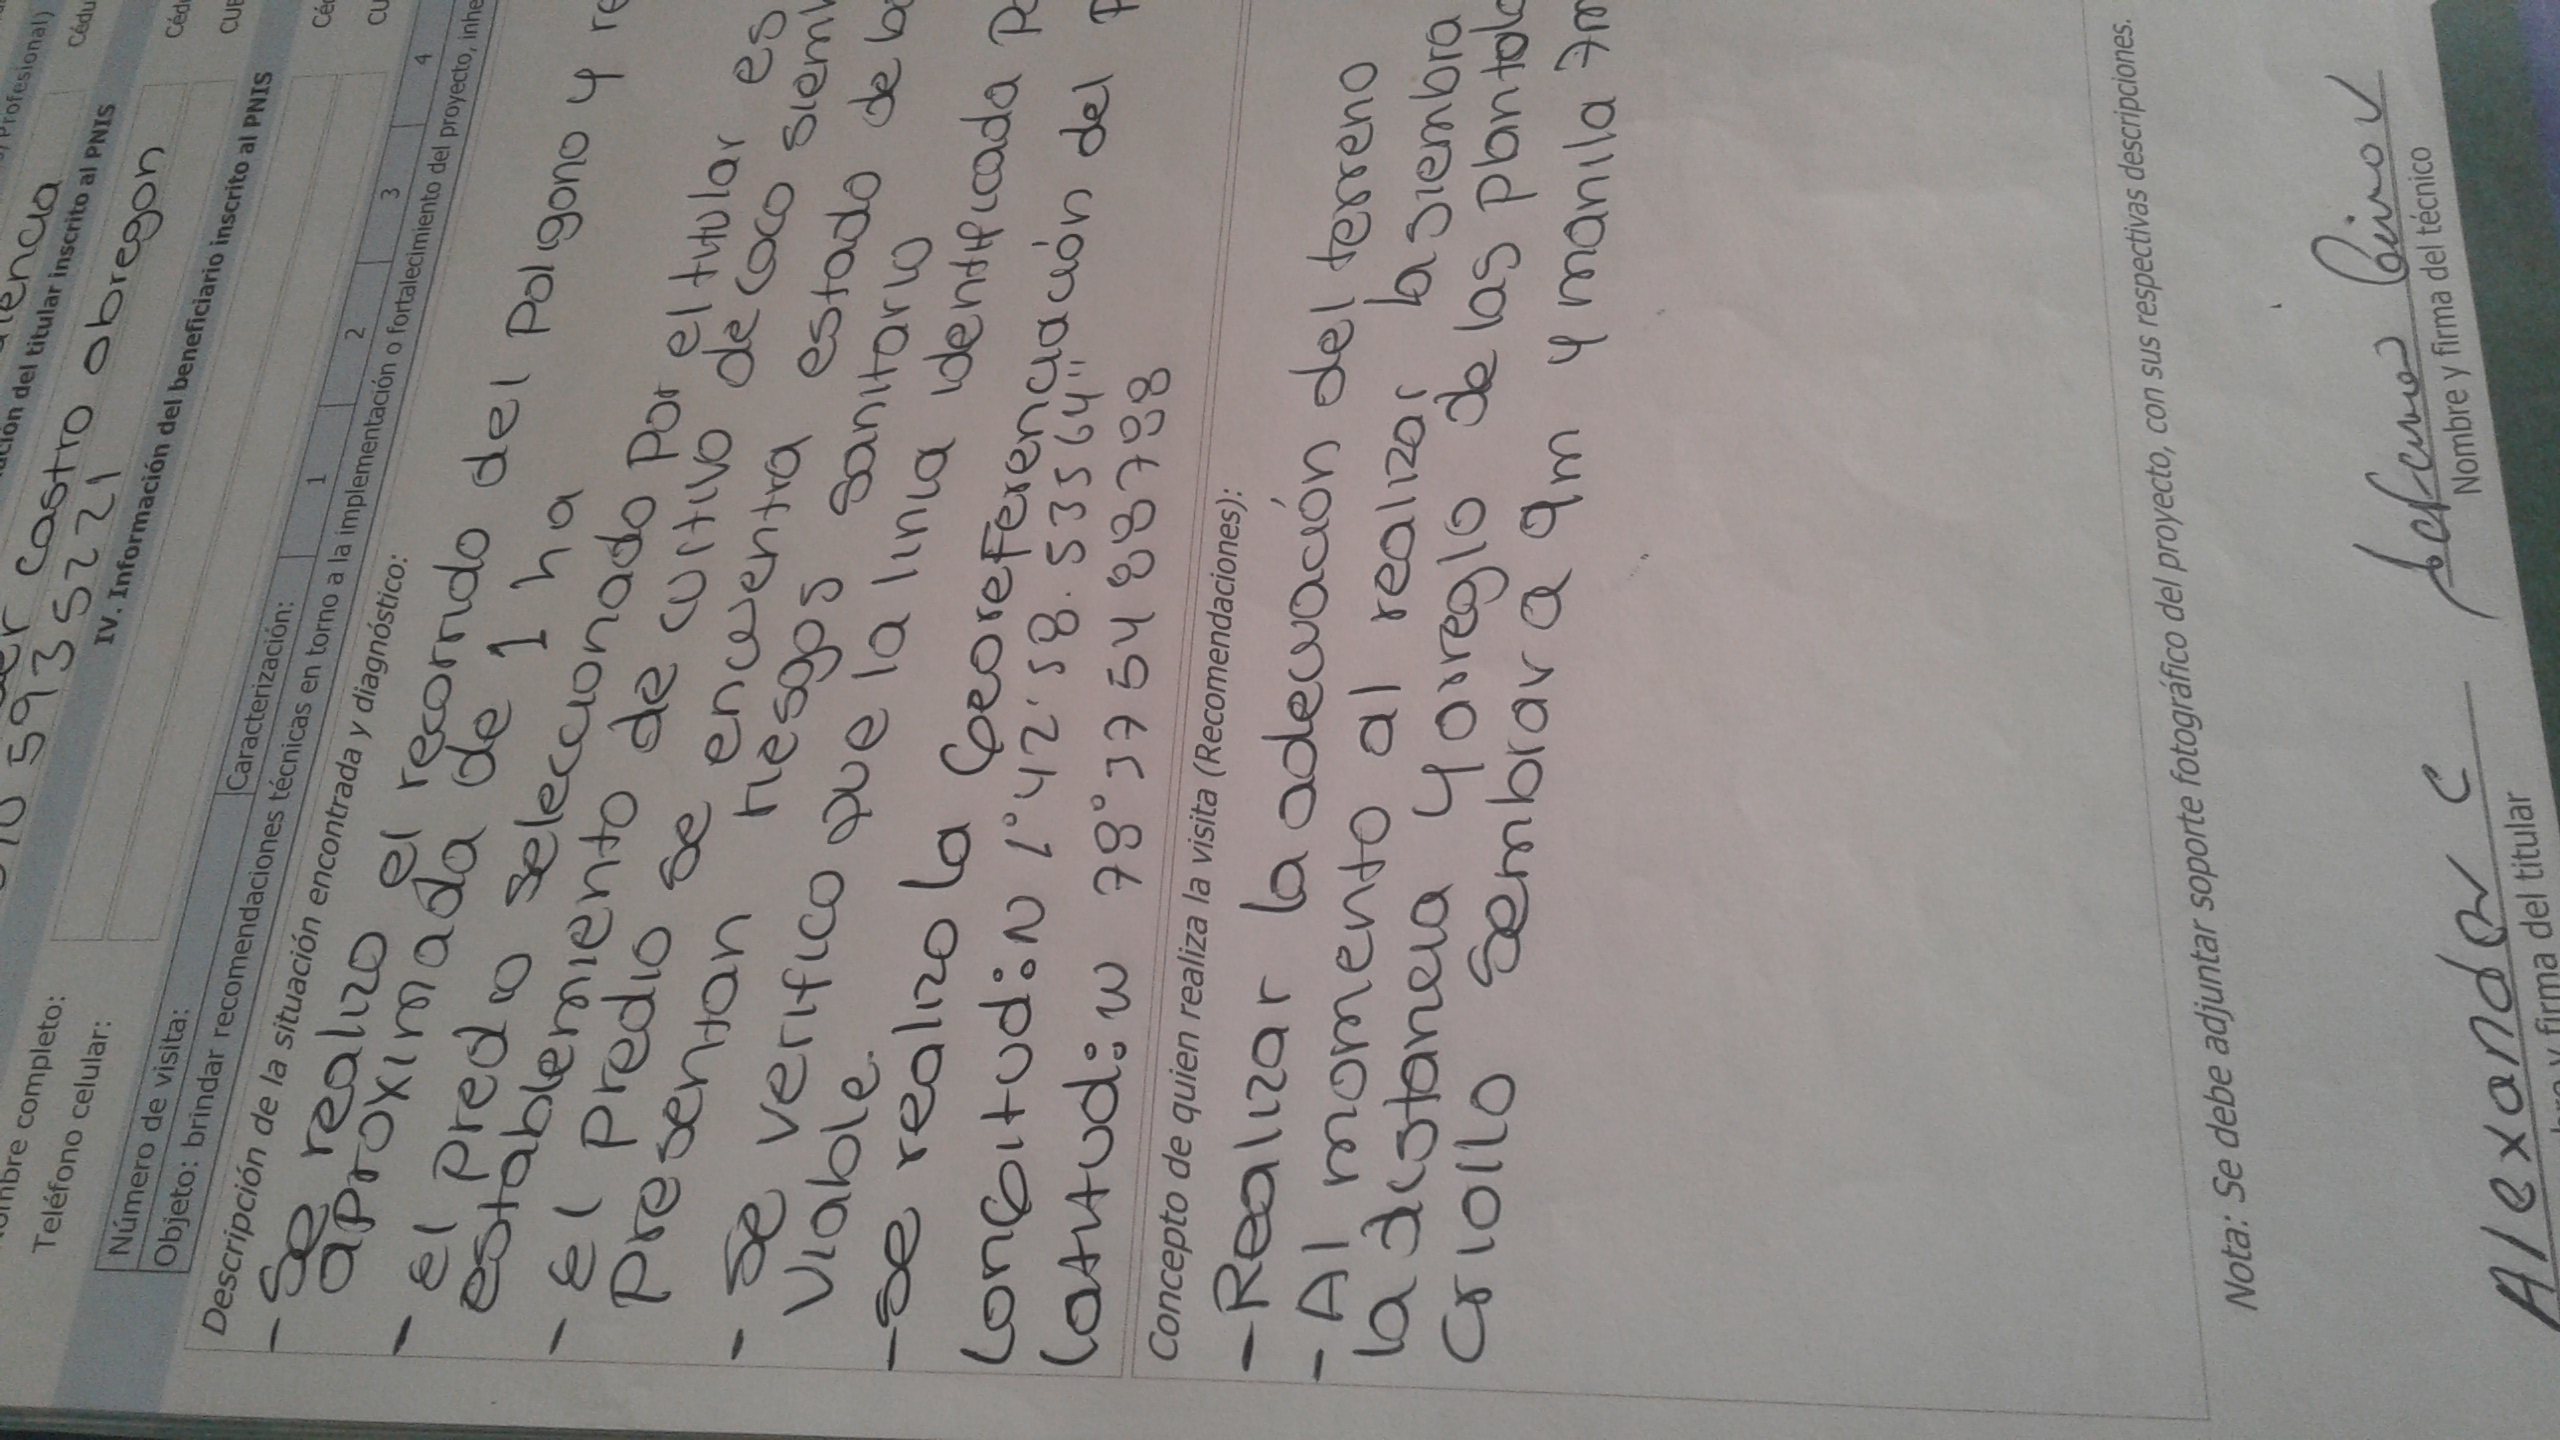 Profesional)
Cédu
ación del titular inscrito al PNIS
Nombre completo:
Castro obregon
Teléfono celular:
5935221
IV. Información del beneficiario inscrito al PNIS
Número de visita:
Caracterización:
1
2
3
4
Objeto: brindar recomendaciones técnicas en torno a la implementación o fortalecimiento del proyecto, inhe
Descripción de la situación encontrada y diagnóstico:
- Se realizo el recorrido del Poligono y re
aproximada de 1 ha
- el Predio seleccionado Por el titular es
establemiento de cultivo de coco siem
- el Predio se encuentra estado de ba
Presentan riesgos sanitario
- Se verifico que la linia identificada Po
viable.
- Se realizo la Georeferenciación del P
Longitud: N 1° 42' 58. 535 64"
Latitud: W 78° 37 54 887 88
Concepto de quien realiza la visita (Recomendaciones):
- Realizar la adecuación del terreno
- Al momento al realizar la siembra
la distancia y areglo de las plantula
Criollo Sembrar a 9m y manila 7m
Nota: Se debe adjuntar soporte fotográfico del proyecto, con sus respectivas descripciones.
Alexander C
firma del titular
Nombre y firma del técnico